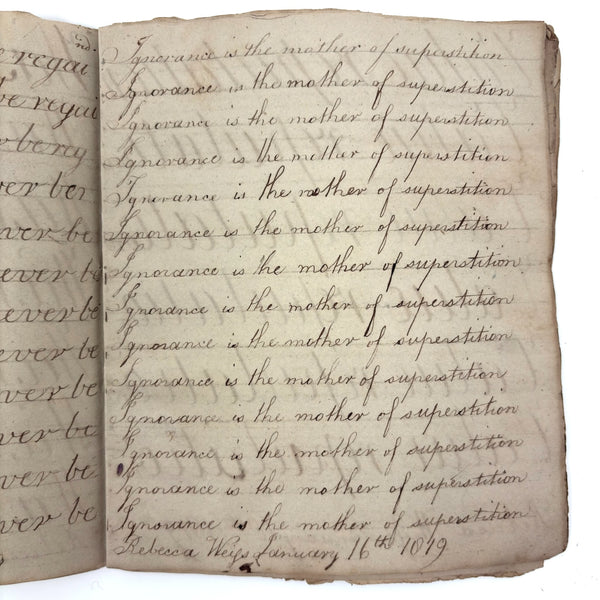 nd.
e regai
be regai
r be reg
ver ber
ver be
ever be
ever be
ever be
ever be
ver be
ver be
ver be
Ignorance is the mother of superstition
Ignorance is the mother of superstition
Ignorance is the mother of superstition
Ignorance is the mother of superstition
Ignorance is the mother of superstition
Ignorance is the mother of superstition
Ignorance is the mother of superstition
Ignorance is the mother of superstition
Ignorance is the mother of superstition
Ignorance is the mother of superstition
Ignorance is the mother of superstition
Ignorance is the mother of superstition
Ignorance is the mother of superstition
Ignorance is the mother of superstition
Rebecca Weiſs January 16th 1819